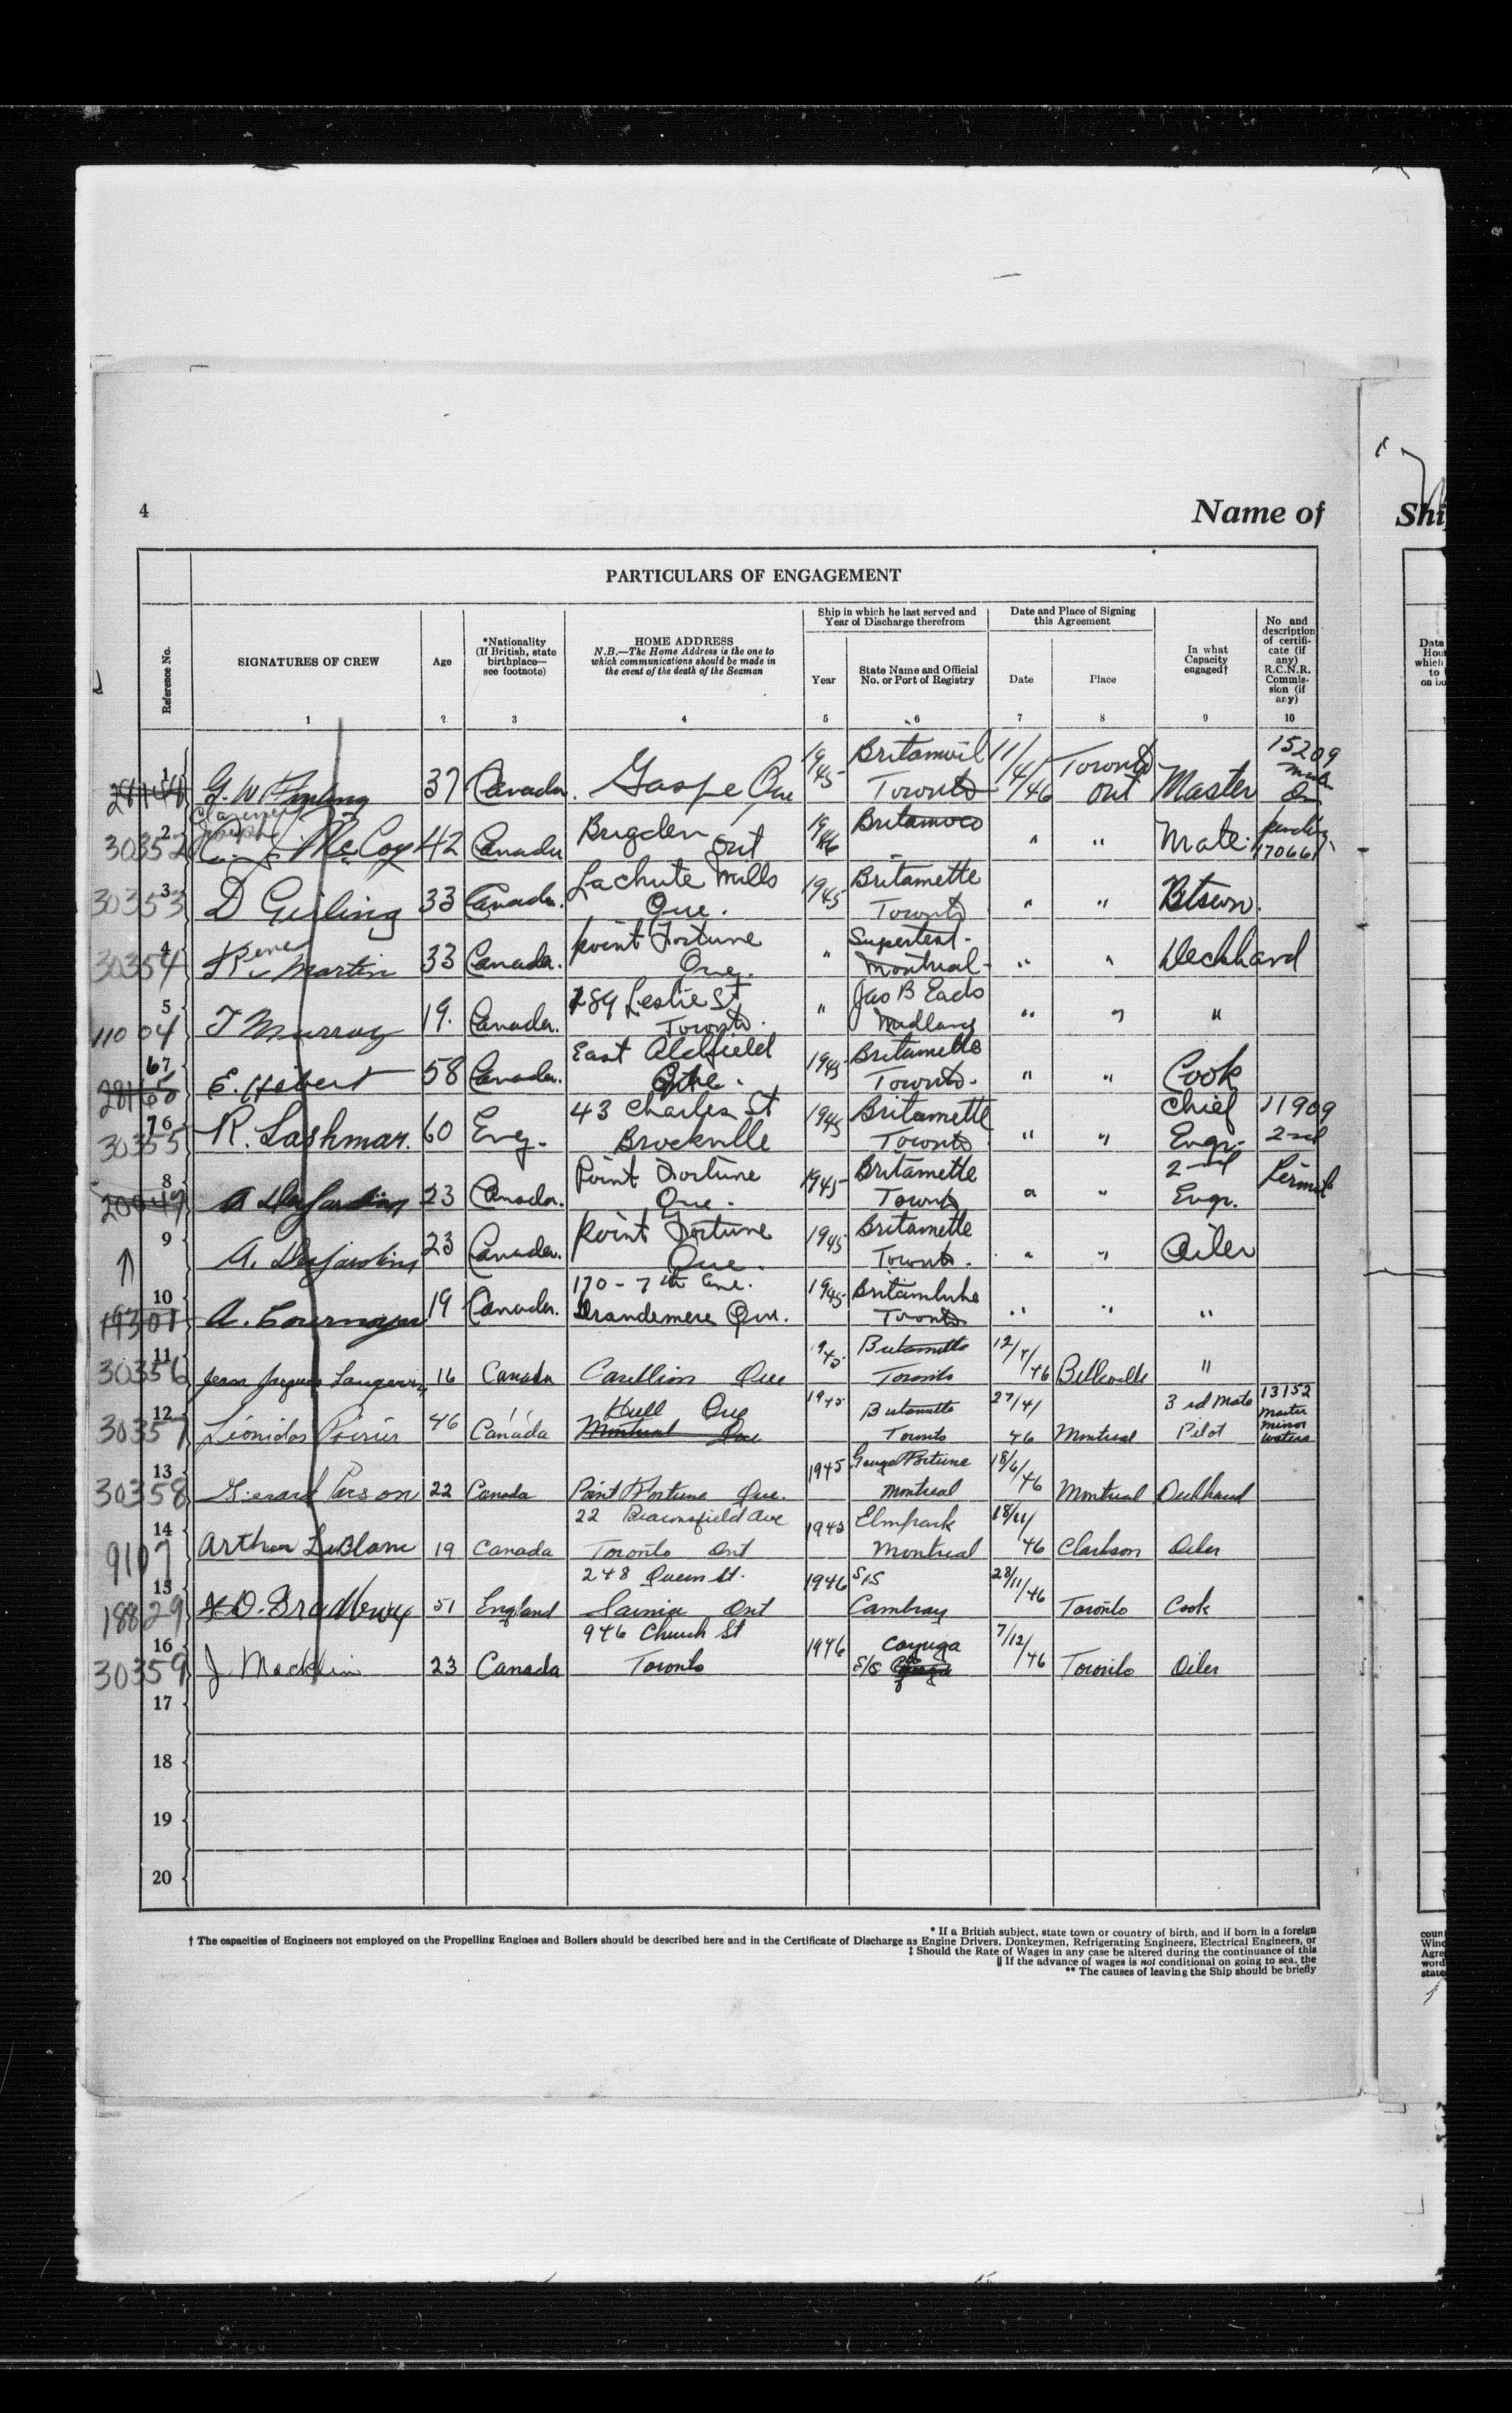 4
Name of
Shi
PARTICULARS OF ENGAGEMENT
Reference No.
SIGNATURES OF CREW
Age
*Nationality
(If British, state
birthplace—
see footnote)
HOME ADDRESS
N.B.—The Home Address is the one to
which communications should be made in
the event of the death of the Seaman
Ship in which he last served and
Year of Discharge therefrom
Year
State Name and Official
No. or Port of Registry
Date and Place of Signing
this Agreement
Date
Place
In what
Capacity
engaged†
No and
description
of certifi-
cate (if
any)
R.C.N.R.
Commis-
sion (if
any)
1 2 3 4 5 6 7 8 9 10
1 G. W. 37 Canada. Gaspe Que 19/45 Britamoil Toronto 11/4/46 Toronto Ont Master 15209
30352 2 Clarence Joseph C. J. McCoy 42 Canada Brigden Ont 19/46 Britamoco " " Mate. pending 17066
30353 3 D Geiling 33 Canada. Lachute Mills Que. 1945 Britamette Toronto " " Btswn.
30354 4 Rene R. Martin 33 Canada. Point Fortune Que. " Supertest Montreal " " Deckhand
11004 5 T Murray 19. Canada. 289 Leslie St Toronto. " Jas B Eads Midland " " "
67 28165 E. Hebert 58 Canada. East Aldfield Que. 1945 Britamette Toronto. " " Cook
30355 76 R. Lashmar. 60 Eng. 43 Charles St Brockville 1945 Britamette Toronto " " Chief Engr. 11909 2nd
8 A Desjardins 23 Canada. Point Fortune Que. 1945 Britamette Toronto " " 2nd Engr. Permit
9 A. Desjardins 23 Canada. Point Fortune Que. 1945 Britamette Toronto. " " Oiler
19301 10 A. Cournoyer 19 Canada. 170 - 7th Ave. Grandemere Que. 1945 Britamlube Toronto " " "
30356 11 Jean Jacques Langevin 16 Canada Carillion Que 1945 Britamette Toronto 12/4/46 Belleville "
30357 12 Léonidas Poirier 46 Canada Hull Que Montreal Que 1945 Britamette Toronto 27/4/46 Montreal 3rd Mate Pilot 13152 Master minor waters
30358 13 Gerard Person 22 Canada Point Fortune Que. 1945 Montreal 18/6/46 Montreal Deckhand
9107 14 Arthur LeBlanc 19 Canada 22 Beaconsfield Ave Toronto Ont 1945 Elmpark Montreal 18/11/46 Clarkson Oiler
18829 15 D. Bradbury 51 England 248 Queen St. Sarnia Ont 1946 S/S Cambray 28/11/46 Toronto Cook
30359 16 J Macklin 23 Canada 946 Church St Toronto 1946 Cayuga S/S 7/12/46 Toronto Oiler
17
18
19
20
* If a British subject, state town or country of birth, and if born in a foreign
† The capacities of Engineers not employed on the Propelling Engines and Boilers should be described here and in the Certificate of Discharge as Engine Drivers, Donkeymen, Refrigerating Engineers, Electrical Engineers, or
‡ Should the Rate of Wages in any case be altered during the continuance of this
|| If the advance of wages is not conditional on going to sea, the
** The causes of leaving the Ship should be briefly